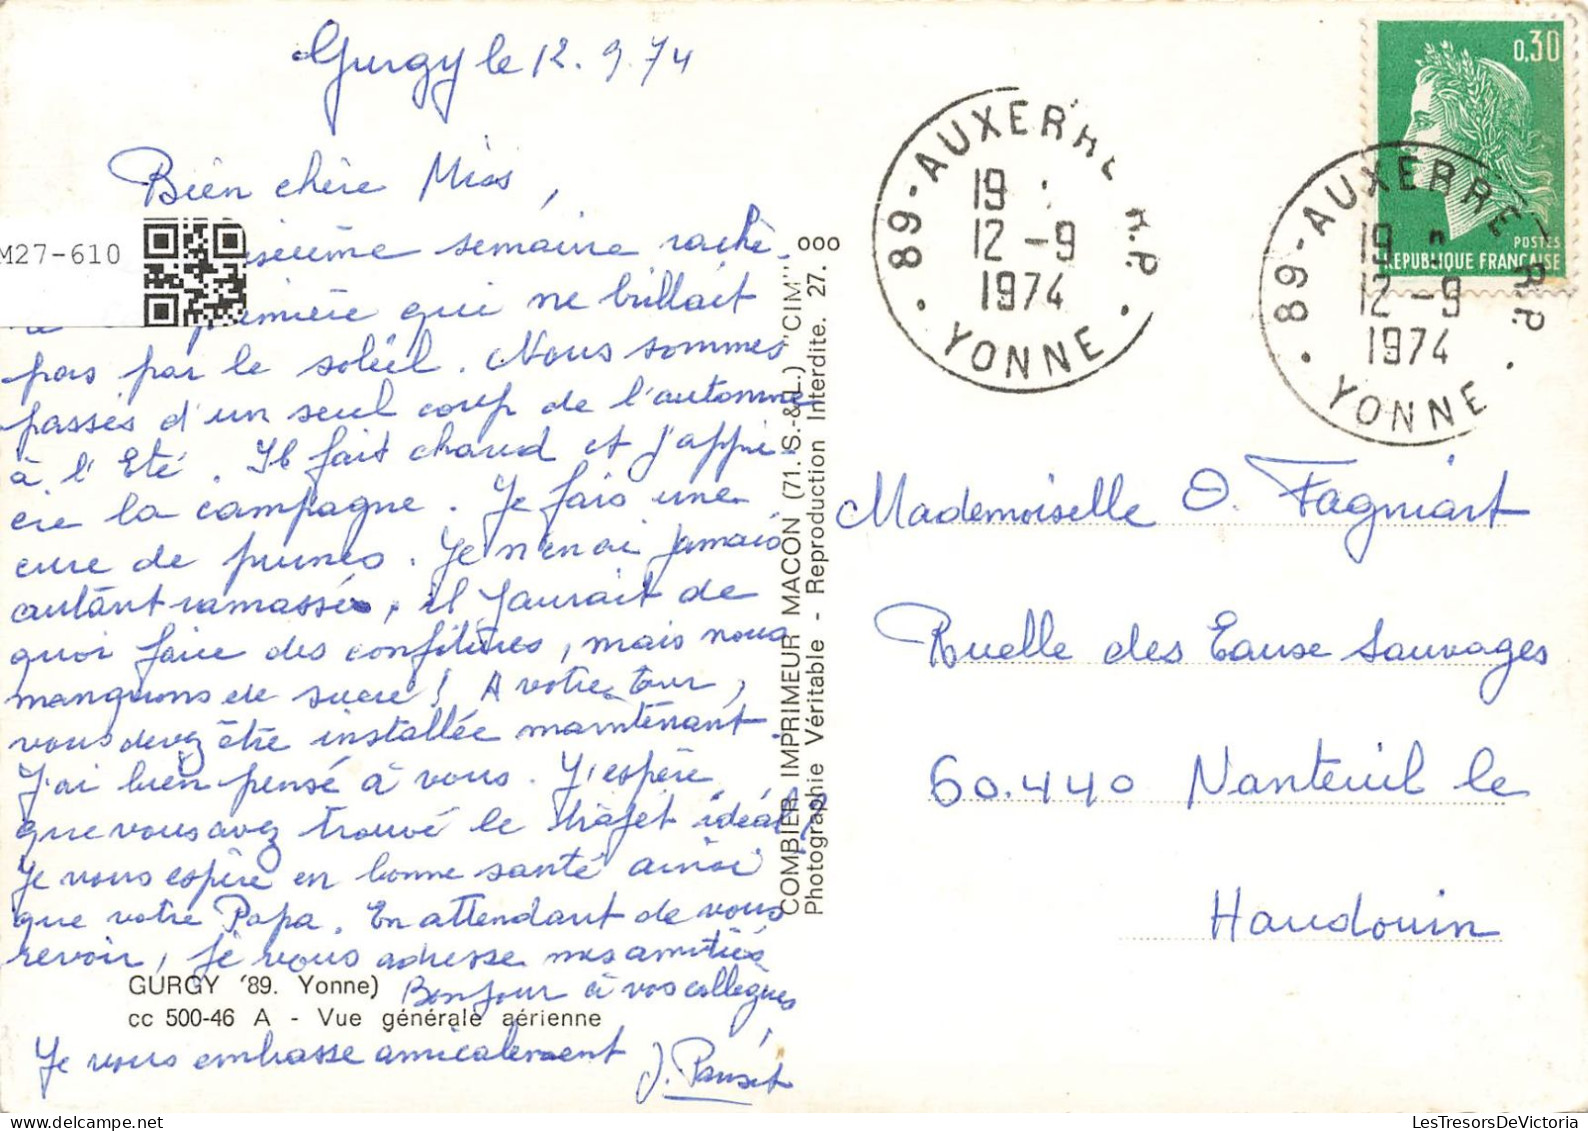 Gurgy le 12.9.74
Bien chère Miss,
M27-610
semaine rachè-
première qui ne brillait
pas par le soleil. Nous sommes
passés d'un seul coup de l'automne
à l'Eté. Il fait chaud et j'appré-
cie la campagne. Je fais une
cure de prunes. Je n'en ai jamais
autant ramassé, il y aurait de
quoi faire des confitures, mais nous
manquons de sucre! A votre tour,
vous devez être installée maintenant.
J'ai bien pensé à vous. J'espère
que vous avez trouvé le trajet idéal?
Je vous espère en bonne santé ainsi
que votre Papa. En attendant de vous
revoir, je vous adresse mes amitiés
Bonjour à vos collègues
Je vous embrasse amicalement
GURGY '89. Yonne)
cc 500-46 A - Vue générale aérienne
COMBIER IMPRIMEUR MACON (71. S.-&-L.) "CIM" ooo
Photographie Véritable - Reproduction Interdite. 27.
89-AUXERRE R.P.
19
12-9
1974
YONNE
0,30
POSTES
REPUBLIQUE FRANÇAISE
89-AUXERRE R.P.
19
12-9
1974
YONNE
Mademoiselle O. Fagniart
Ruelle des Eaux Sauvages
60.440 Nanteuil le
Haudouin
LesTresorsDeVictoria